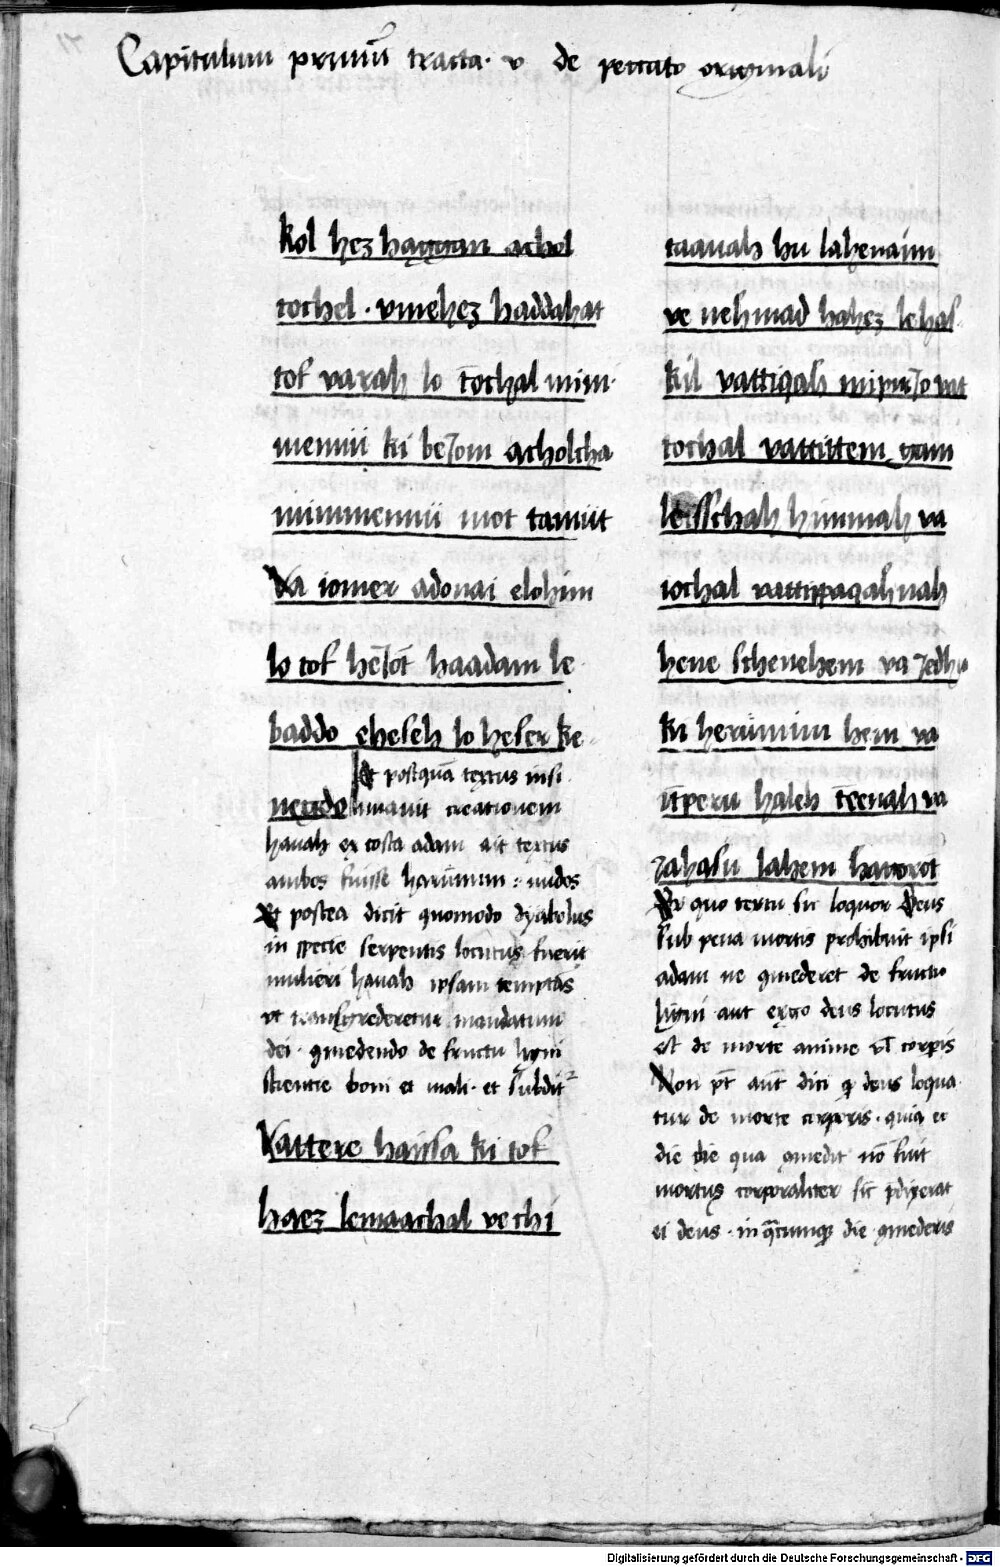 Capitulum primū tracta· v de peccato originali
kol hez haggan achol
tochel · vmehez haddahat
tof varah lo tochal mim·
mennū ki beJom acholcha
mimmennū mot tamut
Va iomer adonai elohim
lo tof hēiōt haadam le
baddo eheseh lo heser ke
Et postquā textus insi
negdo nuavit creationem
havah ex costa adam ait textus
ambos fuisse harūmim : nudos
Et postea dicit quomodo dyabolus
in specie serpentis locutus fuerit
mulieri havah ipsam temptās
vt transgrederetur mandatum
dei · comedendo de fructu ligni
scientie boni et mali · et subdit
Vattere haissa ki tof
haez lemaachal vechi
taavah hu lahenaim
ve nehmad hahez lehas
kil vattiqah mipirJo vat
tochal vattittem gam
leisschah himmah va
iochal vattippaqahnah
hene schenehem va Jedhu
ki herūmim hem va
itperu haleh tēenah va
Jahasu lahem hagorot
Ex quo textu sic loquor Deus
sub pena mortis prohibuit ipsi
adam ne comederet de fructu
ligni aut ergo deus locutus
est de morte anime vl corpis
Non pt aut dici q deus loqua
tur de morte corporis · quia et
die die qua comedit nō fuit
mortus corporaliter sic pdixerat
ei deus · in qcumq die comederis
Digitalisierung gefördert durch die Deutsche Forschungsgemeinschaft - DFG